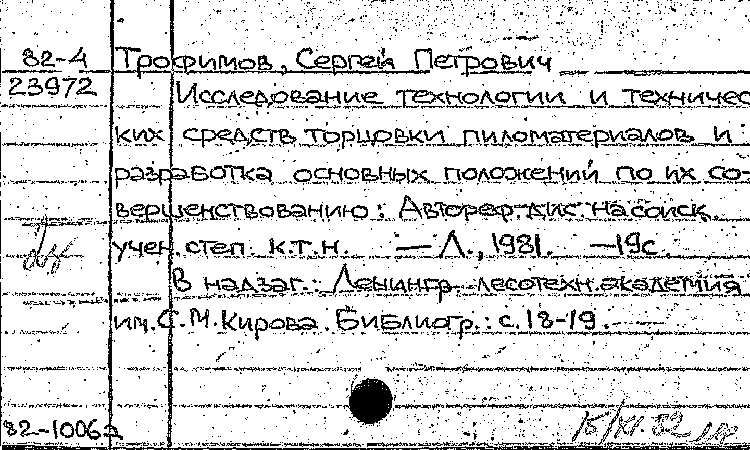 82-4 Трофимов, Сергей Петрович
23972 Исследование технологии и техничес
ких средств торцовки пиломатериалов и
разработка основных положений по их со-
вершенствованию: Автореф. дис. на соиск.
учен. степ. к.т.н. — Л., 1981. — 19с.
В надзаг.: Ленингр. лесотехн. академия
им. С.М. Кирова. Библиогр.: с. 18-19.
82-1006а 15/XI.82